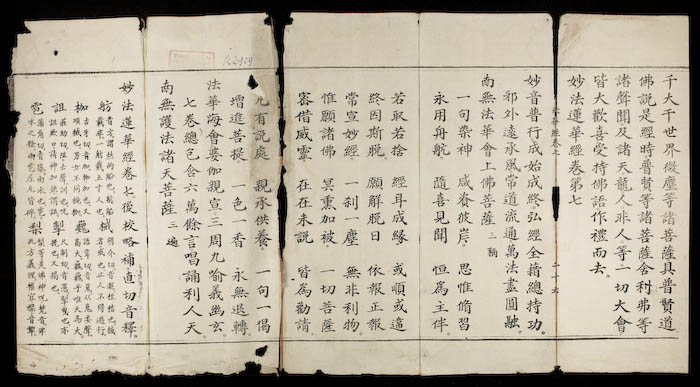 千大千世界微塵等諸菩薩具普賢道
佛說是經時普賢等諸菩薩舍利弗等
諸聲聞及諸天龍人非人等一切大會
皆大歡喜受持佛語作禮而去。
妙法蓮華經卷第七
法華經卷七 二十六
妙音普行成始成終弘經全藉總持功。
邪外遠承風常道流通萬法盡圓融。
南無法華會上佛菩薩 三稱
一句染神 咸資彼岸 思惟脩習
永用舟航 隨喜見聞 恒為主伴
若取若捨 經耳成緣 或順或違
終因斯脫 願解脫日 依報正報
常宣妙經 一刹一塵 無非利物
惟願諸佛 冥熏加被 一切菩薩
密借威靈 在在未說 皆為勸請
凡有說處 親承供養 一句一偈
增進菩提 一色一香 永無退轉
法華海會婁伽親宣三周九喻義幽玄。
七卷總包含六萬餘言唱誦利人天
南無護法諸天菩薩 三遍
妙法蓮華經卷七後校略補直切音釋